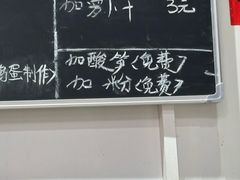 加萝卜干 3元
鸡蛋制作) 加酸笋(免费)
加米粉(免费)